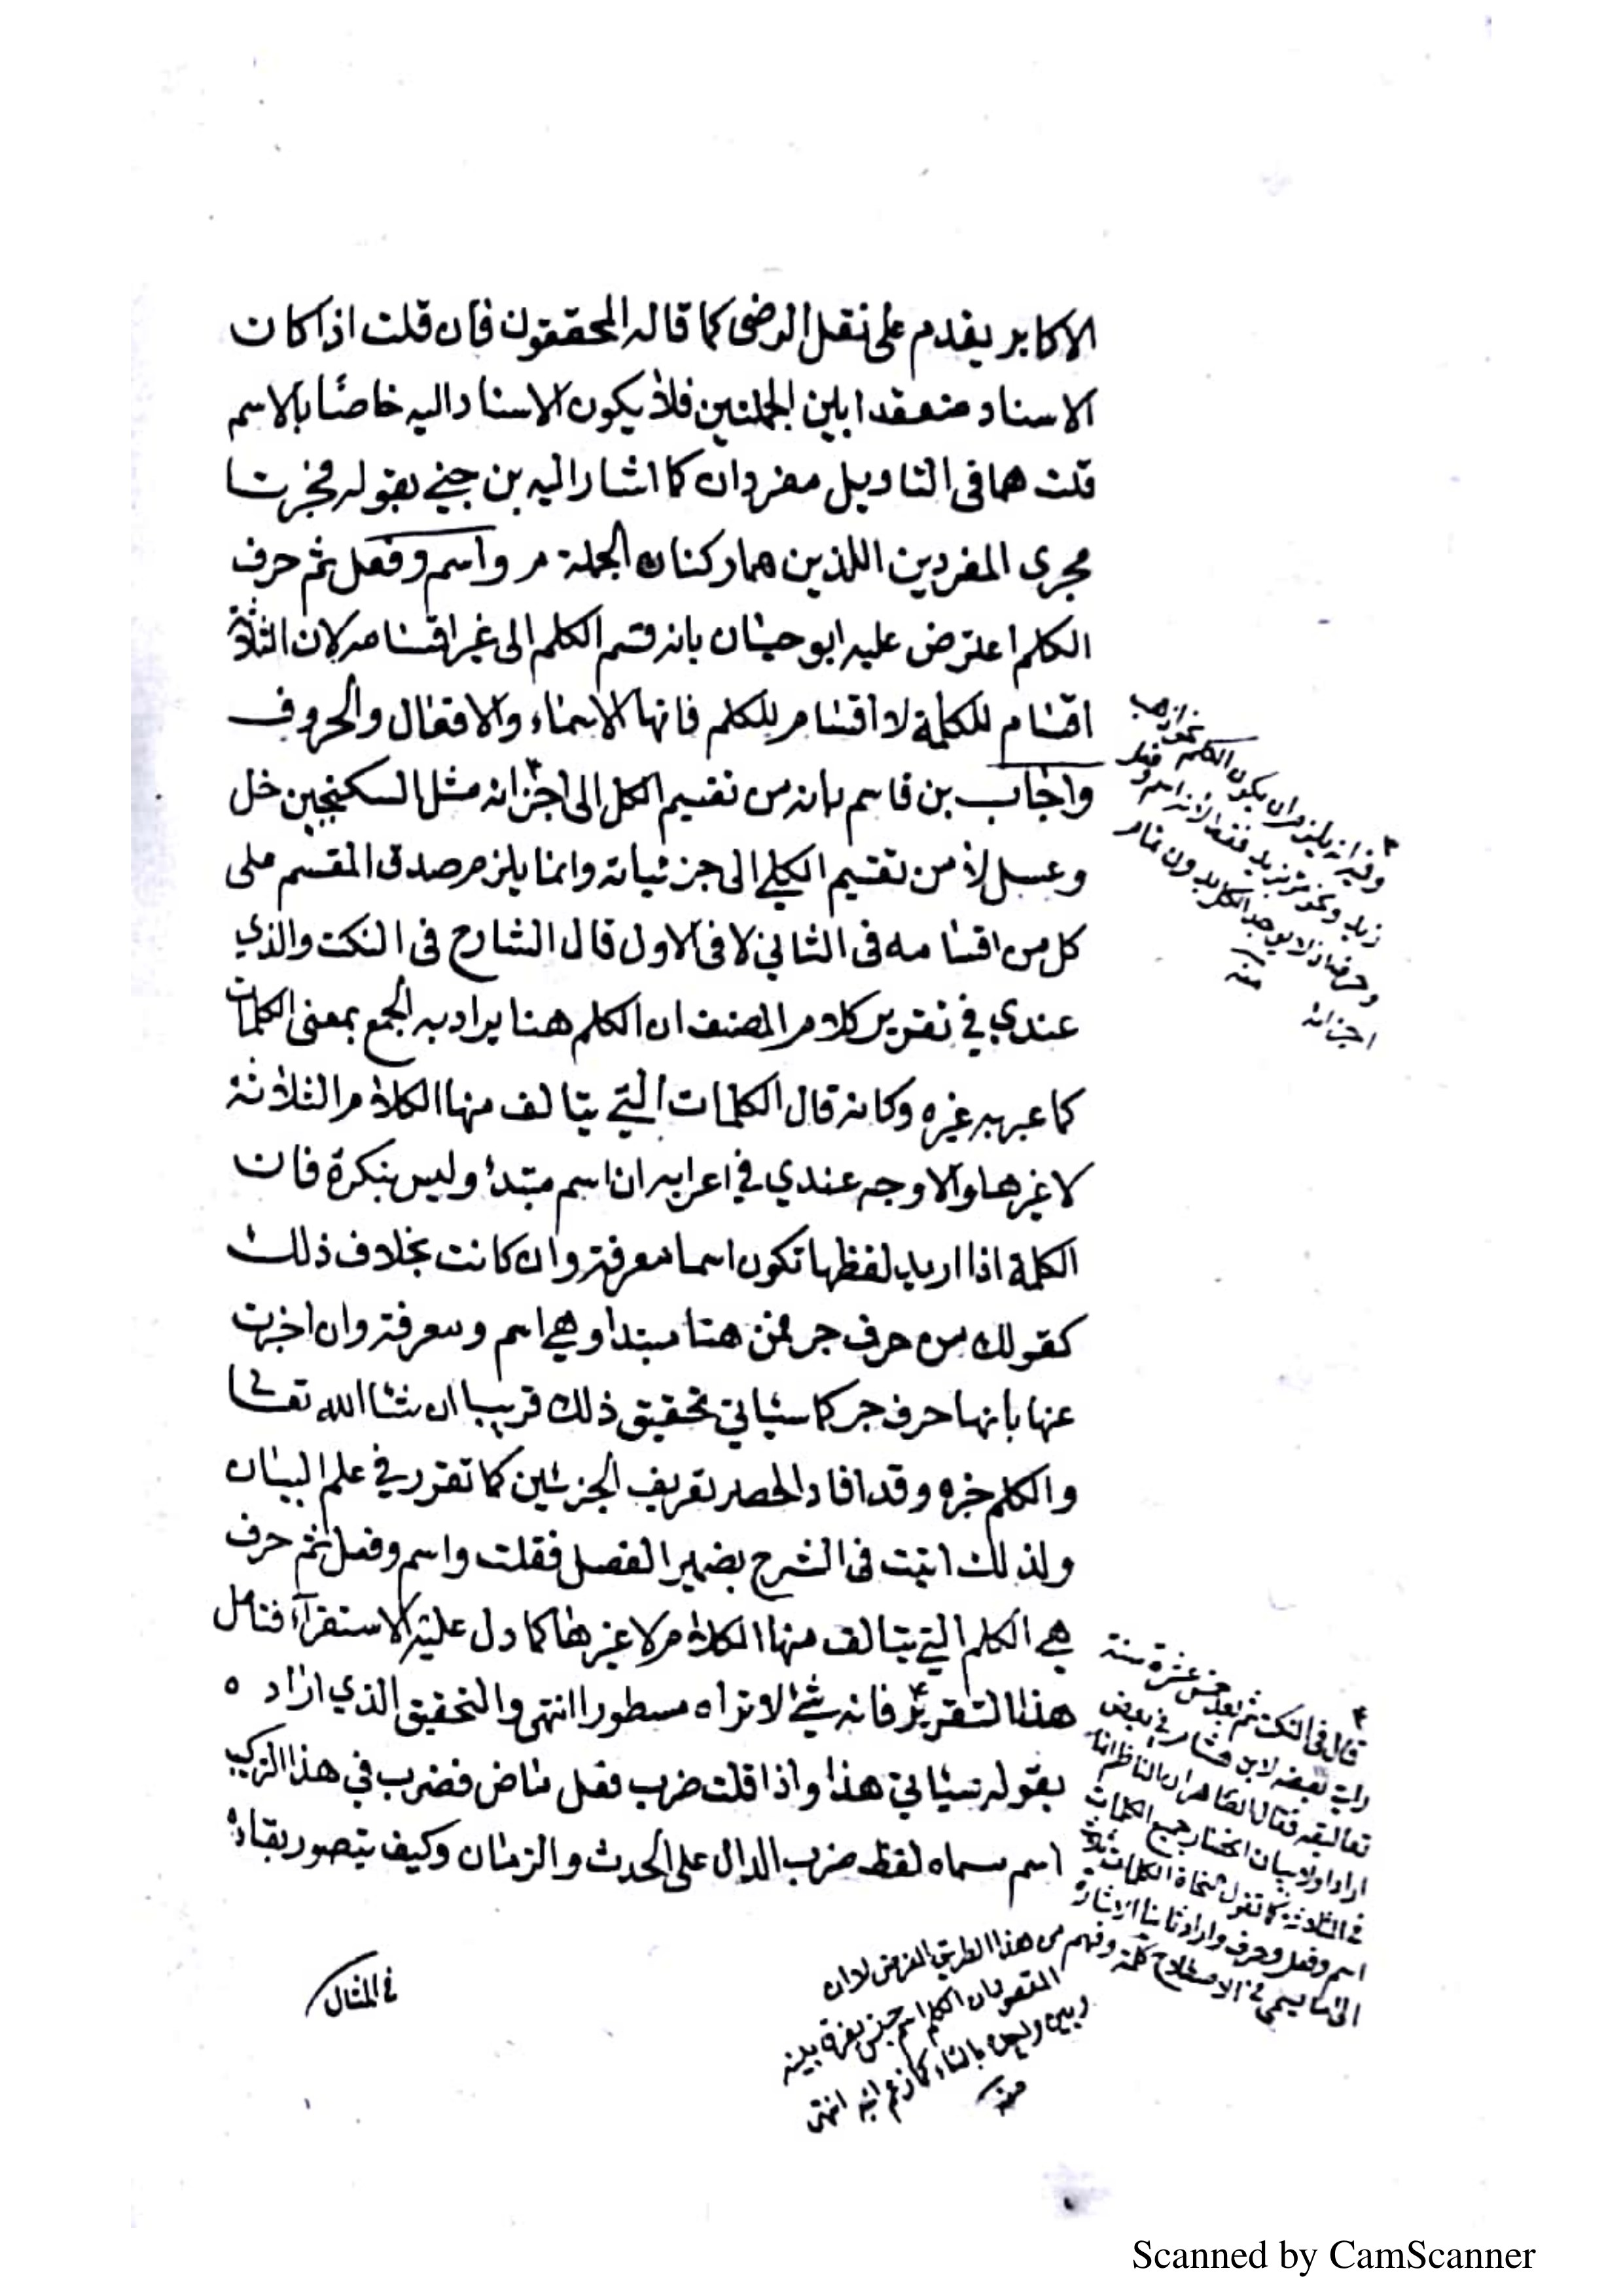 الاكابر يقدم على نقل الرضى كما قاله المحققون فان قلت اذا كان
الاسناد منعقدا بلين الجملتين فلا يكون الاسناد اليه خاصًا بالاسم
قلت هما فى التاويل مفردان كما اشار اليه بن جني بقوله فجرتا
مجرى المفردين اللذين هما ركنان الجملة م واسم وفعل ثم حرف
الكلم اعترض عليه ابو حيان بانه قسم الكلم الى غير اقسامه لان الثلاثة
اقسام للكلمة لا اقسام للكلم فانها الاسماء والافعال والحروف
واجاب بن قاسم بانه من تقسيم الكل الى اجزائه مثل السكنجبين خل
وعسل لا من تقسيم الكلي الى جزئياته وانما يلزم صدق المقسم على
كل من اقسامه فى الثاني لا فى الاول قال الشارح فى النكت والذي
عندي في تقرير كلام المصنف ان الكلم هنا يراد به الجمع بمعنى الكلمات
كما عبر به غيره وكانه قال الكلمات التي يتالف منها الكلام الثلاثة
لا غيرها والاوجه عندي في اعرابه ان اسم مبتدء وليس بنكرة فان
الكلمة اذا اريد لفظها تكون اسما معرفة وان كانت بخلاف ذلك
كقولك من حرف جر فمن هنا مبتدا وهي اسم ومعرفة وان اخبرت
عنها بانها حرف جر كما سياتي تحقيق ذلك قريبا ان شا الله تعالى
والكلم خبره وقد افاد الحصر تعريف الجزئين كما تقرر في علم البيان
ولذلك اتيت فى الشرح بضمير الفصل فقلت واسم وفعل ثم حرف
هي الكلم التي يتالف منها الكلام لا غيرها كما دل عليه الاستقرآء فتامل
هذا التقرير فانه شيء لا تراه مسطورا انتهى والتحقيق الذي اراده
بقوله سياتي هذا واذا قلت ضرب فعل ماض فضرب في هذا التركيب
اسم مسماه لفظ ضرب الدال على الحدث والزمان وكيف يتصور بقاء
في المثال
وفيه انه يلزم ان يكون الكلم نحو اذهب
زيد ونحو بزيد فقط لانه اسم وفعل
وحرف اذ لا يوجد الكل بدون تمام
اجزائه
منه
قال فى النكت ثم بعد خمس عشرة سنة
رايت بعضه لابن هشام في بعض
تعاليقه فقال الظاهر ان الناظم انما
اراد اولا بيان انحصار جميع الكلمات
في الثلاثة كما تقول النحاة الكلمات ثلاث
اسم وفعل وحرف واراد ثانيا الاشارة
الى ما يسمى في الاصطلاح كلمة وفهم من هذا الطريق الغرض لا ان
الكلم اسم جنس يفرق بينه
وبين واحده بالتاء كما زعم ابنه انتهى
منه
Scanned by CamScanner